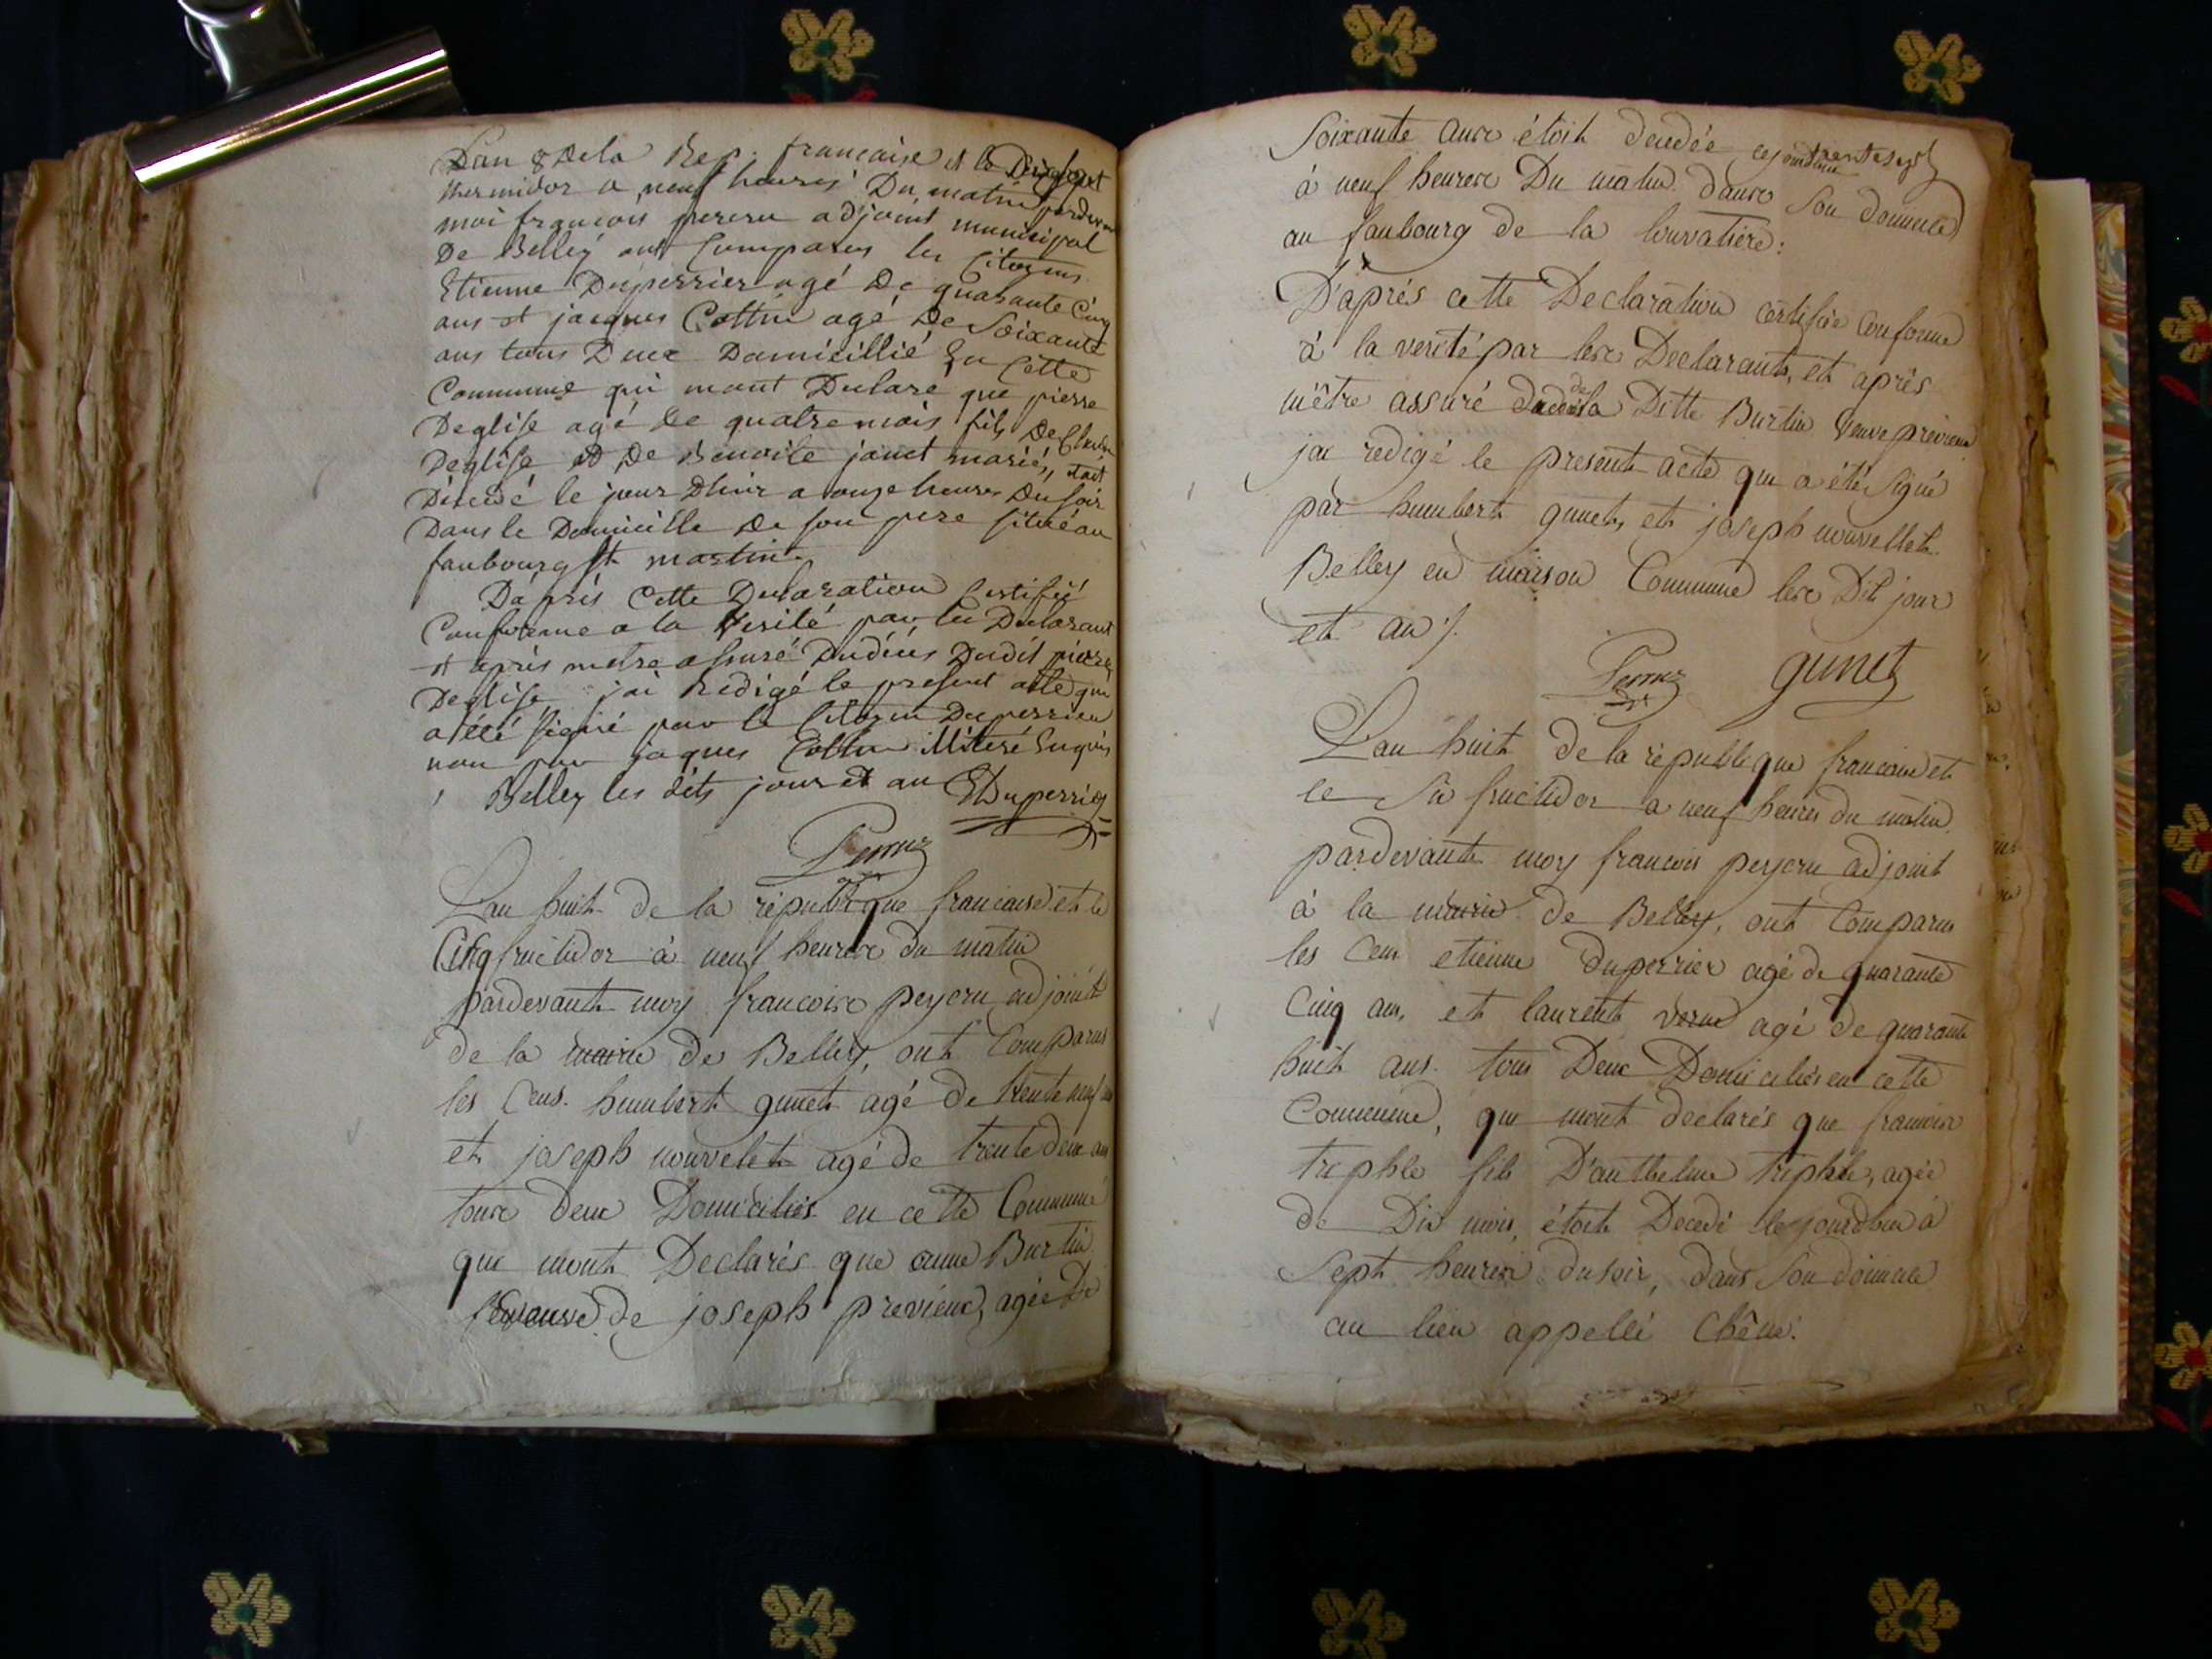 L'an 8 De la Rep. française et le Dixsept
thermidor a neuf heures Du matin pardevant
moi françois perecru adjoint municipal
De Belley ont Comparus les Citoyens
Etienne Duperrier agé De quarante Cinq
ans et jacques Cottin agé De Soixante
ans tous Deux Domicillié En Cette
Commune qui mont Declaré que pierre
Deglise agé De quatre mois fils De
Deglise et De Benoite janet mariés, etoit
Décédé le jour Dhier a onze heures Du soir
Dans le Domicille De son pere situé au
faubourg St martin.
D'aprés Cette Declaration Certifié
Conforme a la Verité par les Declarant
et aprés metre assuré Dudécés Dudit pierre
Deglise jai Redigé le present acte qui
a été signé par le Citoyen Duperrier
non par jaques Cottin illiteré Enquis
Belley les dits jour et an EDuperrier
L'an huit de la république francaise et le
Cinq fructidor à neuf heures du matin
pardevant moy francois peycru adjoint
de la mairie de Belley, ont Comparus
les Cens. humbert gunet agé de trente neuf ans
et joseph nouvelet agé de trente deux ans
tous deux Domiciliés en cette Commune
qui mont Declarés que anne Burtin
veuve de joseph previeux, agée De
Soixante ans étoit decedée
à neuf heures Du matin dans Son domicile
au faubourg de la louvatiere:
D'après cette Declaration certifiée conforme
à la verité par les Declarants, et après
m'être assuré de la Ditte Burtin veuve previeux
jai redigé le present acte qui a été signé
par humbert gunet, et joseph nouvellet
Belley en maison Commune les Dit jour
et an ./.
gunet
L'an huit de la république francaise et
le Six fructidor a neuf heures du matin
pardevant moy francois peycru adjoint
à la mairie de Belley, ont Comparus
les Cens etienne duperrier agé de quarante
Cinq ans, et laurent verne agé de quarante
huit ans. tous Deux Domiciliés en cette
Commune, qui mont declarés que francois
triphle fils D'anthelme triphle, agée
de Dix mois, étoit Decedé le jourdhier à
Sept heures du soir, dans Son domicile
au lieu appellé Chêne.